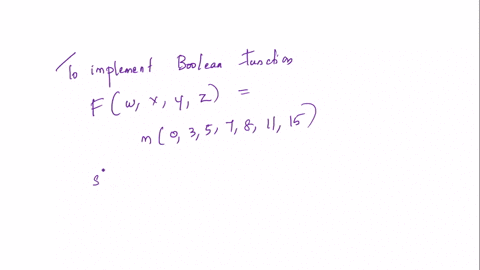 To implement Boolean function
F(w, x, y, z) =
m(0, 3, 5, 7, 8, 11, 15)
s